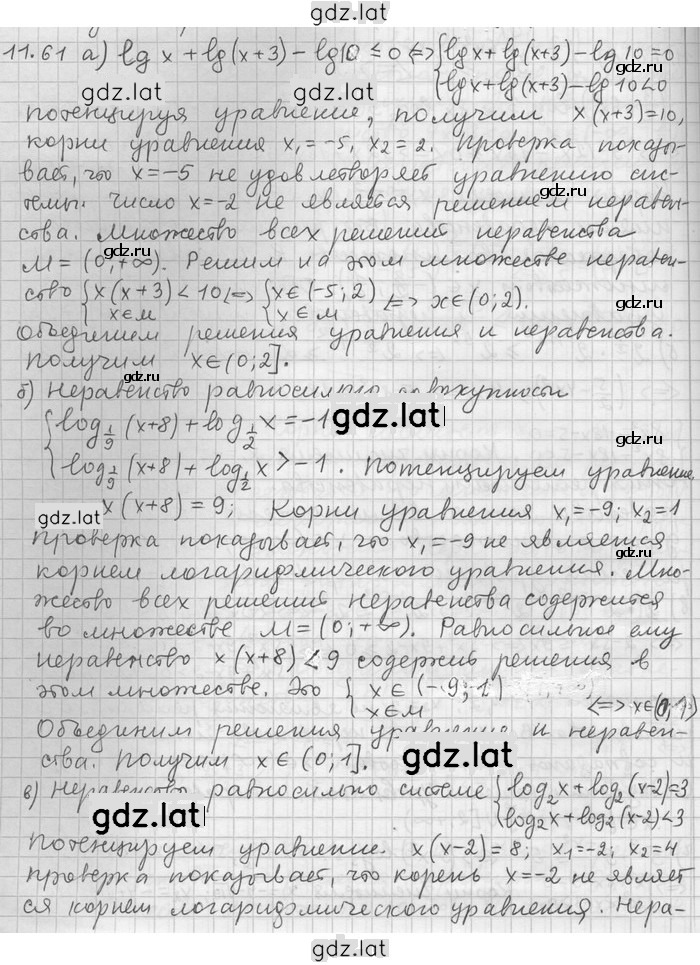 gdz.lat
11.61 а) lg x + lg(x+3) − lg10 ≤ 0 <=> { lg x + lg(x+3) − lg 10 = 0
{ lg x + lg(x+3) − lg 10 < 0
gdz.lat gdz.lat
потенцируя уравнение, получим x(x+3)=10,
gdz.lat
корни уравнения x₁=−5, x₂=2. Проверка показы-
вает, что x=−5 не удовлетворяет уравнению сис-
gdz.lat
темы. Число x=−2 не является решением неравен-
ства. Множество всех решений неравенства
gdz.lat
M = (0;+∞). Решим на этом множестве неравен-
ство { x(x+3) < 10 <=> { x∈(−5;2) <=> x∈(0;2).
{ x∈M { x∈M
gdz.lat
Объединим решения уравнения и неравенства.
получим x∈(0;2].
gdz.lat
б) Неравенство равносильно совокупности
{ log 1/9 (x+8) + log 1/2 x = −1
gdz.lat
{ log 1/9 (x+8) + log 1/2 x > −1. Потенцируем уравнение.
gdz.lat
x(x+8) = 9; Корни уравнения x₁=−9; x₂=1
gdz.lat
проверка показывает, что x₁=−9 не является
корнем логарифмического уравнения. Мно-
gdz.lat
жество всех решений неравенства содержится
во множестве M=(0;+∞). Равносильное ему
gdz.lat
неравенство x(x+8) < 9 содержит решения в
этом множестве. Это { x∈(−9;1) <=> x∈(0;1)
{ x∈M
gdz.lat
Объединим решения уравнения и неравен-
gdz.lat
ства. Получим x∈(0;1].
в) Неравенство равносильно системе { log₂x + log₂(x−2)=3
{ log₂x + log₂(x−2)<3
gdz.lat
потенцируем уравнение. x(x−2)=8; x₁=−2; x₂=4
проверка показывает, что корень x=−2 не являет
ся корнем логарифмического уравнения. Нера-
gdz.lat